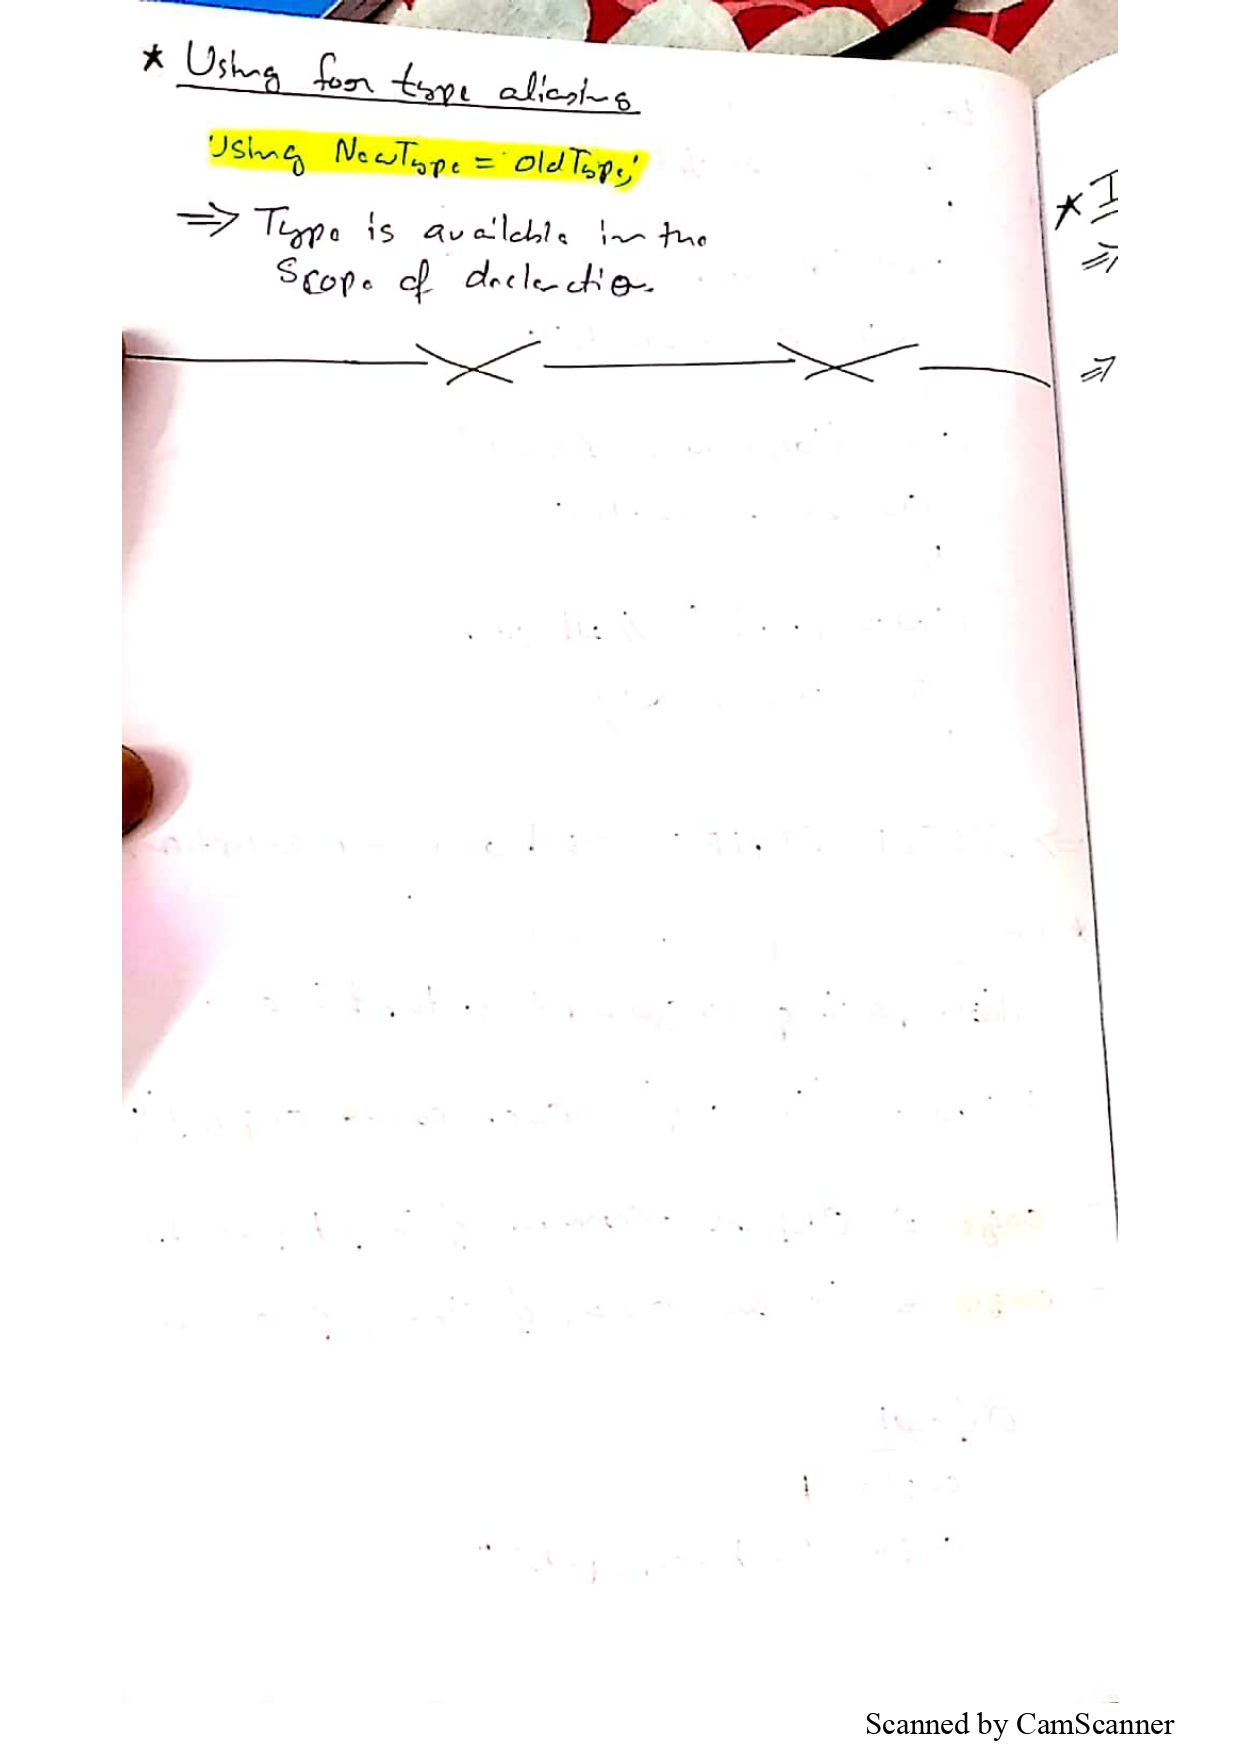 ★ Using for type aliasing
Using NewType = OldType;
⇒ Type is available in the
Scope of declaration.
★ I
⇒
⇒
Scanned by CamScanner